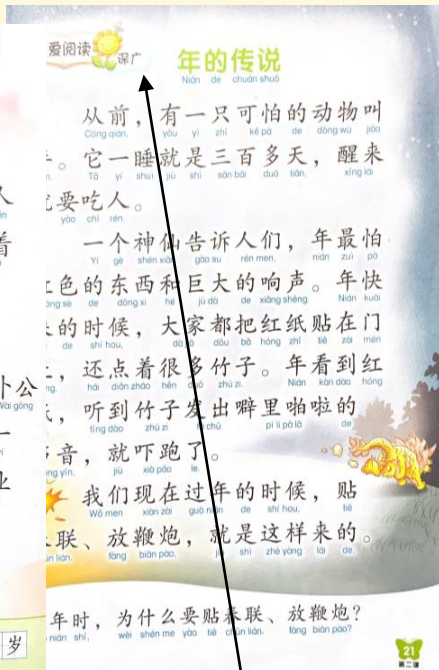 爱阅读
课广
年的传说
Nián de chuán shuō
从前，有一只可怕的动物叫
Cóng qián, yǒu yì zhī kě pà de dòng wù jiào
。它一睡就是三百多天，醒来
Tā yí shuì jiù shì sān bǎi duō tiān, xǐng lái
就要吃人。
yào chī rén.
一个神仙告诉人们，年最怕
Yí gè shén xiān gào su rén men, nián zuì pà
红色的东西和巨大的响声。年快
óng sè de dōng xi hé jù dà de xiǎng shēng. Nián kuài
来的时候，大家都把红纸贴在门
de shí hou, dà jiā dōu bǎ hóng zhǐ tiē zài mén
上，还点着很多竹子。年看到红
hái diǎn zháo hěn duō zhú zi. Nián kàn dào hóng
纸，听到竹子发出噼里啪啦的
tīng dào zhú zi fā chū pī li pā lā de
声音，就吓跑了。
ēng yīn, jiù xià pǎo le.
我们现在过年的时候，贴
Wǒ men xiàn zài guò nián de shí hou, tiē
春联、放鞭炮，就是这样来的。
ūn lián, fàng biān pào, jiù shì zhè yàng lái de.
年时，为什么要贴春联、放鞭炮？
nián shí, wèi shén me yào tiē chūn lián, fàng biān pào?
21
第二课
着
卜公
Wài gōng
一
业
岁